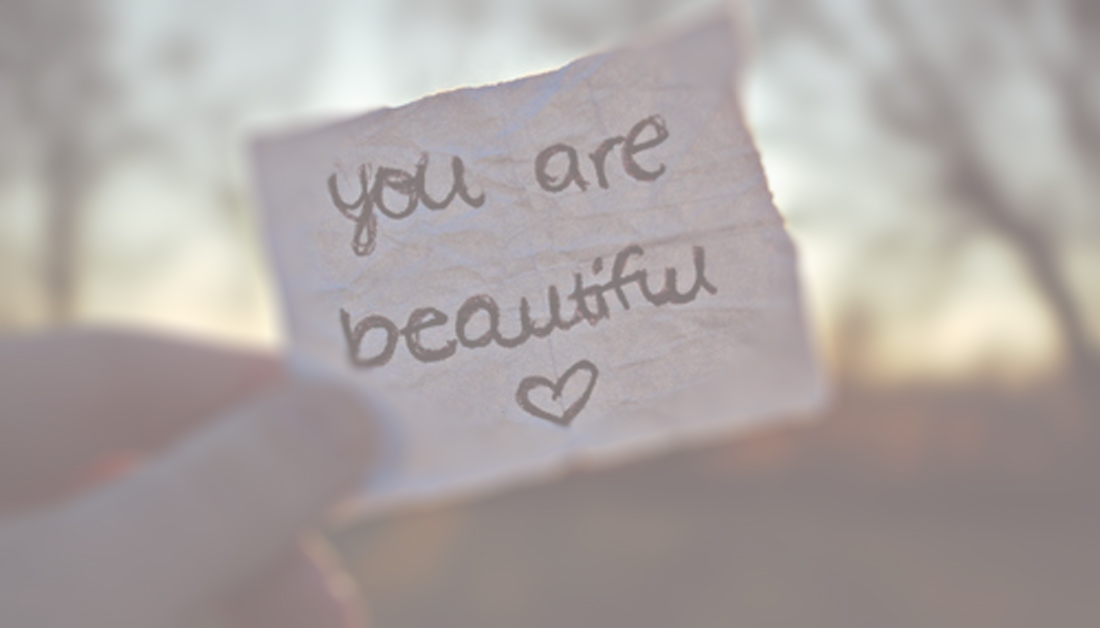 you are
beautiful